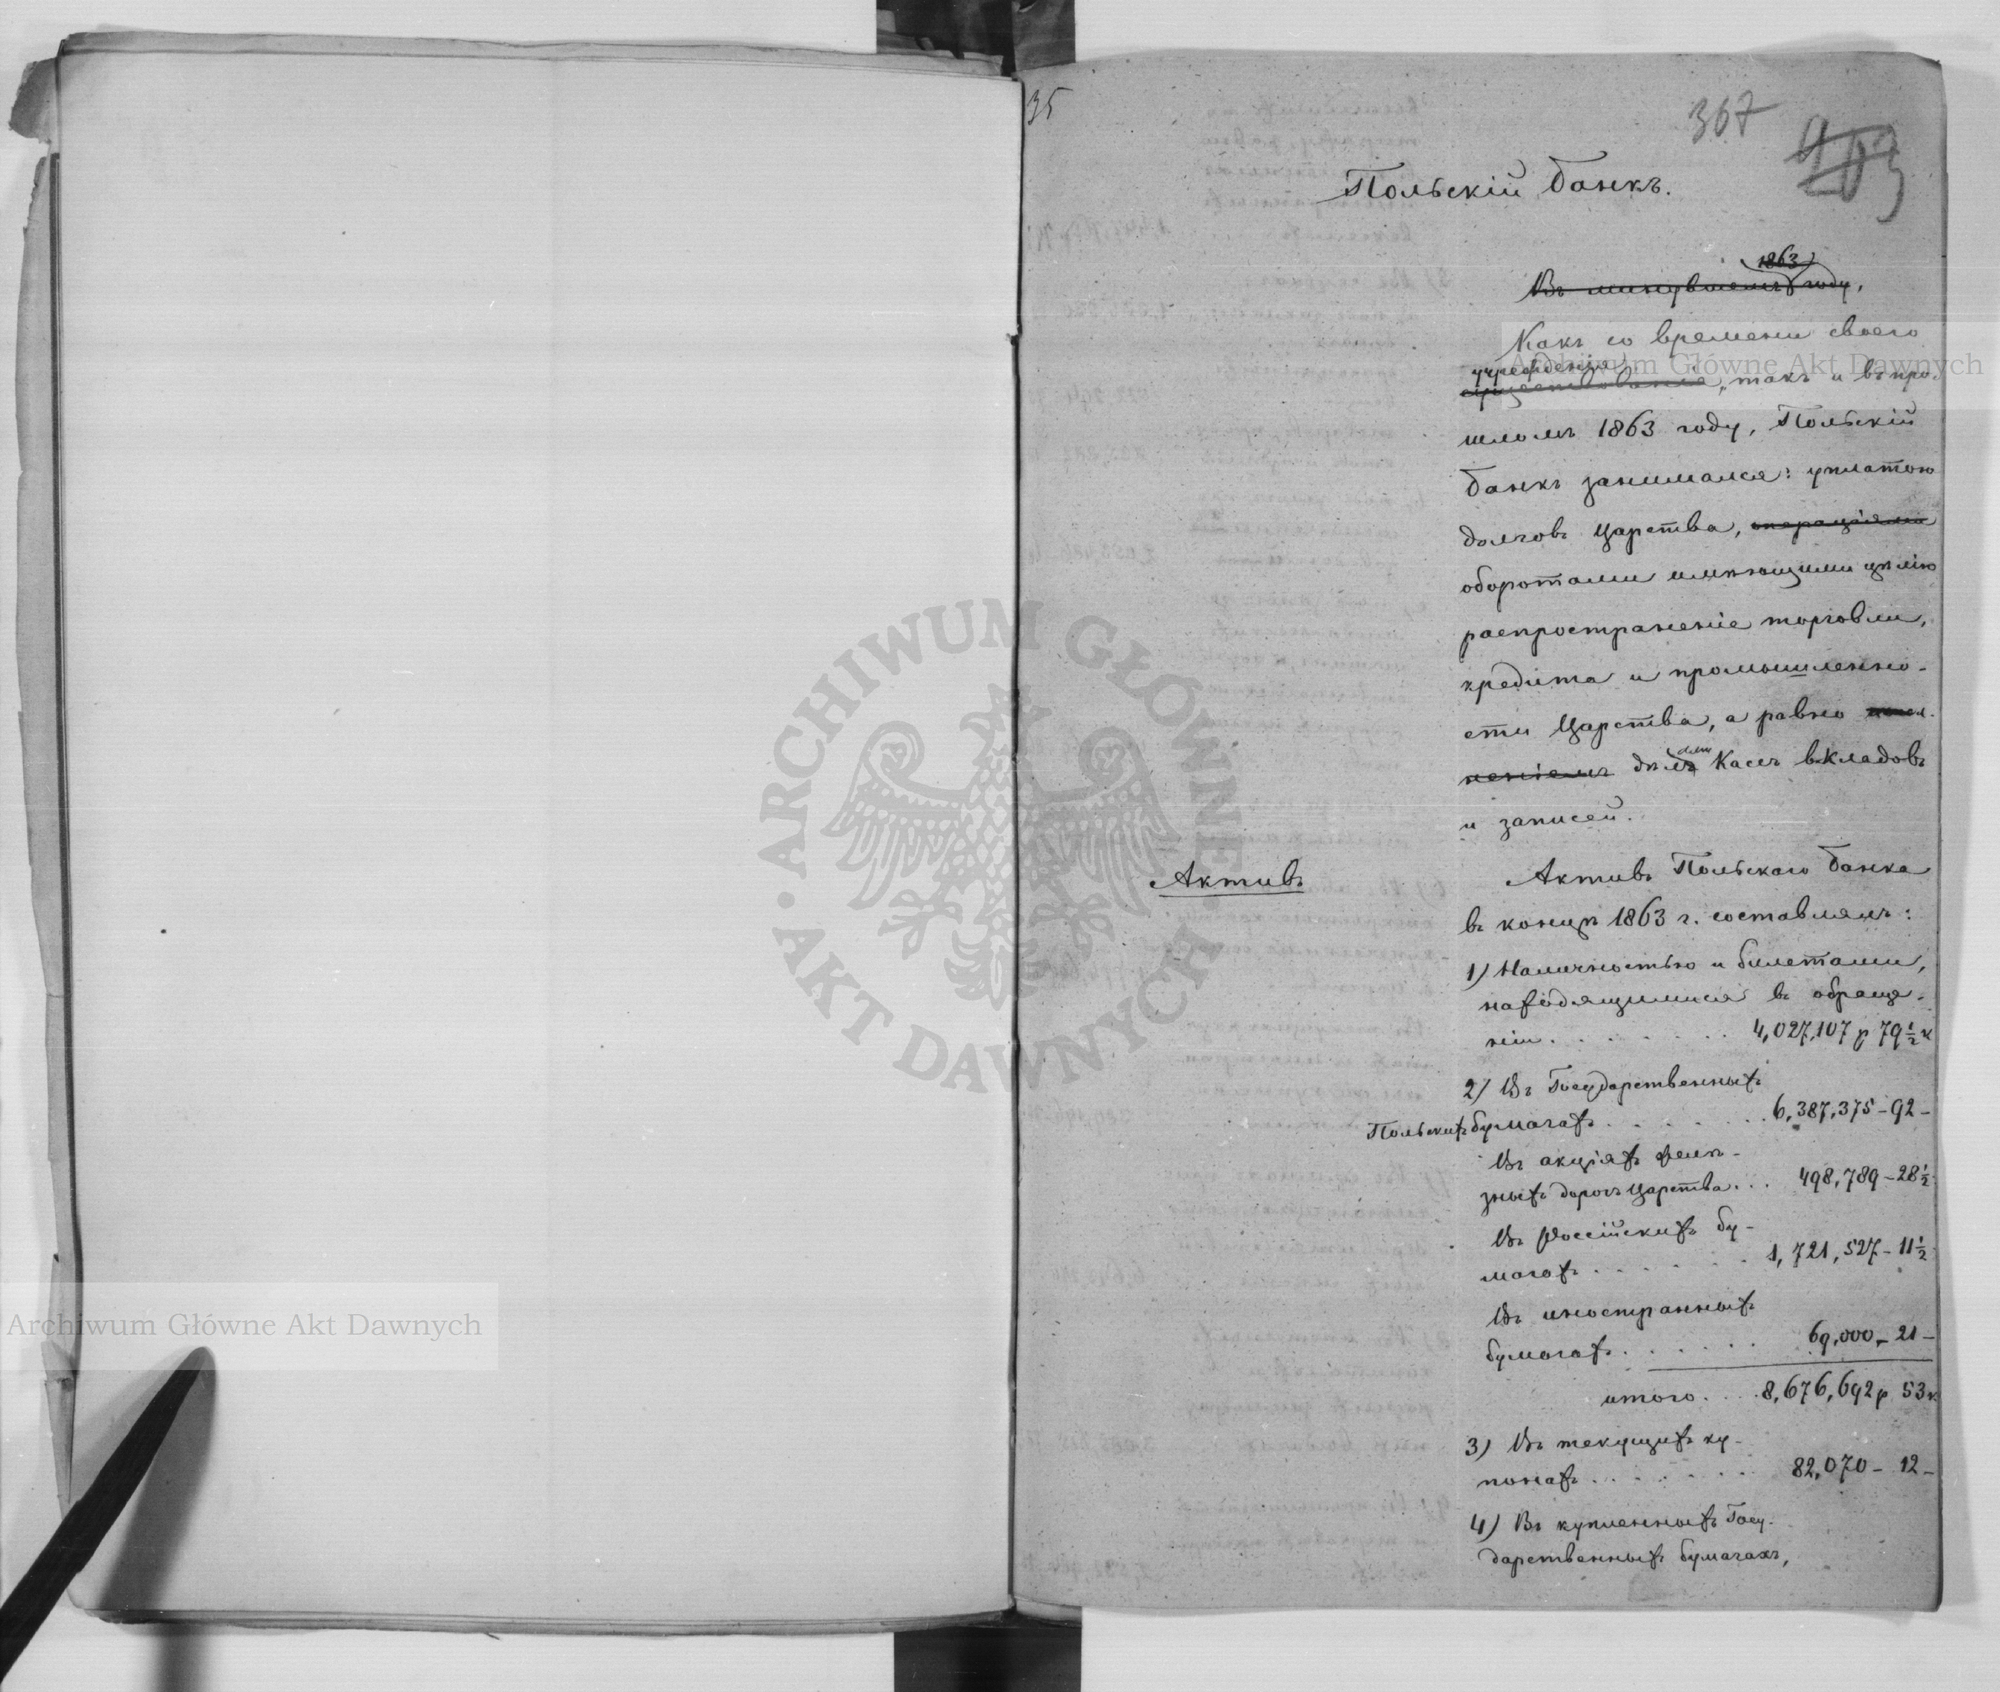 35
367
Польскій Банкъ.
1863
Въ минувшемъ году,
Какъ со времени своего
учрежденія
существованія, такъ и въ про-
шломъ 1863 году, Польскій
Банкъ занимался: уплатою
долговъ Царства, операціями
оборотами имѣющими цѣлію
распространеніе торговли,
кредита и промышленно-
сти Царства, а равно испол-
неніемъ дѣлами Кассъ вкладовъ
и записей.
Активъ
Активъ Польскаго Банка
въ концѣ 1863 г. составлялъ:
1) Наличностью и билетами,
находящимися въ обраще-
ніи . . . . . . . 4,027,107 р 79 ½ к
2) Въ Государственныхъ
Польскихъ бумагахъ . . . . . . 6,387,375 - 92 -
Въ акціяхъ желѣ-
зныхъ дорогъ Царства . . . 498,789 - 28 ½ -
Въ Россійскихъ бу-
магахъ . . . . . . . 1,721,527 - 11 ½ -
Въ иностранныхъ
бумагахъ . . . . . . 69,000 - 21 -
итого . . . 8,676,692 р 53 к
3) Въ текущихъ ку-
понахъ . . . . . . . 82,070 - 12 -
4) Въ купленныхъ Госу-
дарственныхъ бумагахъ,
Archiwum Główne Akt Dawnych
Archiwum Główne Akt Dawnych
ARCHIWUM GŁÓWNE • AKT DAWNYCH •